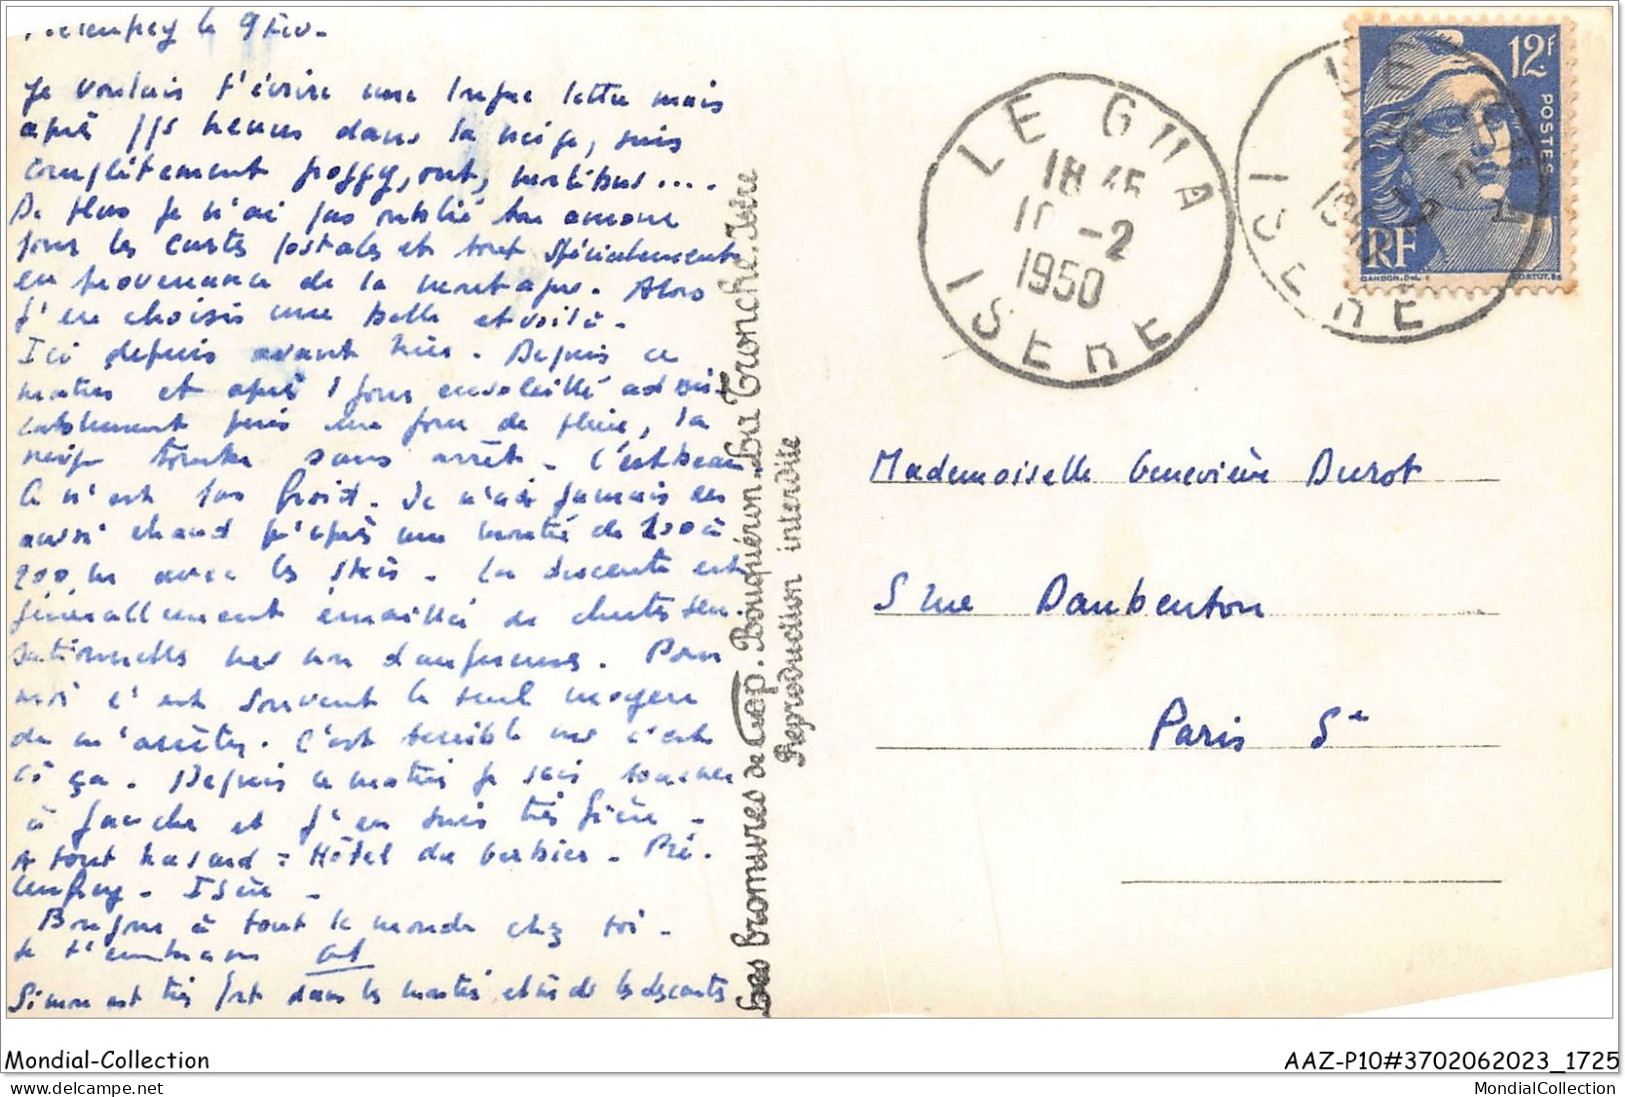 le 9 Fév.
Je voulais t'écrire une longue lettre mais
après heures dans la neige, suis
complètement groggy, out,
De plus je n'ai pas oublié ton amour
pour les cartes postales et tout spécialement
en provenance de la montagne. Alors
j'en choisis une belle et voilà.
Ici depuis avant hier. Depuis ce
matin et après 1 jour ensoleillé admi-
rablement puis un jour de pluie, la
neige tombe sans arrêt. C'est beau
Ce n'est pas froid. Je n'ai jamais eu
aussi chaud qu'après une montée de 100 à
200 m avec les skis. La descente est
généralement émaillée de chutes sen-
sationnelles mais non dangereuses. Pour
moi c'est souvent le seul moyen
de m'arrêter. C'est terrible mais c'est
ça. Depuis ce matin je sais tourner
à gauche et j'en suis très fière.
A tout hasard = Hôtel du Gerbier - Pré-
lenfrey - Isère -
Bonjour à tout le monde chez toi.
Je t'embrasse
Simone est très fort dans les montées et de les descentes
Les bromures de Bouquéron La Tronche. Isère
Reproduction interdite
LE GUA
18 45
10 -2
1950
ISERE
LE
ISERE
12F
POSTES
RF
Mademoiselle Geneviève Durot
5 rue Daubenton
Paris 5e
Mondial-Collection
AAZ-P10#3702062023_1725
MondialCollection